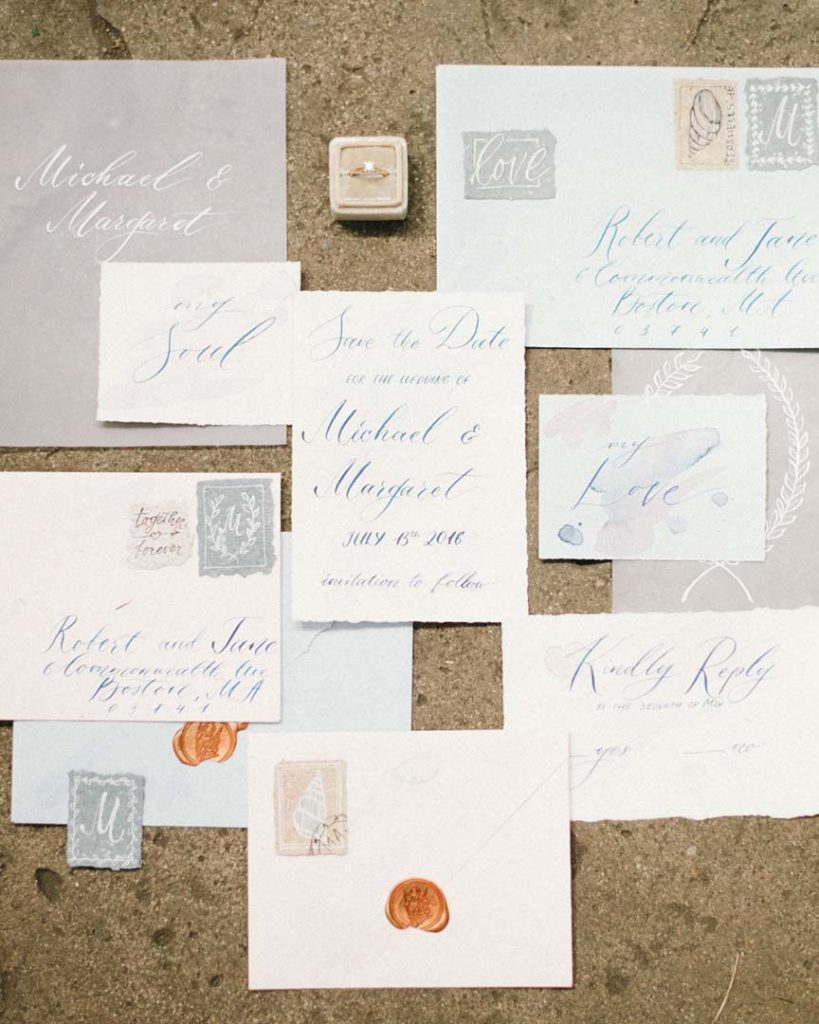 Michael &
Margaret
love
M
Robert and Jane
6 Commonwealth Ave
Boston, MA
03741
my
Soul
Save the Date
FOR THE WEDDING OF
Michael &
Margaret
JULY 13th 2016
invitation to follow
my
Love
together
forever
M
Robert and Jane
6 Commonwealth Ave
Boston, MA
03741
Kindly Reply
BY THE SEVENTH OF MAY
yes no
M